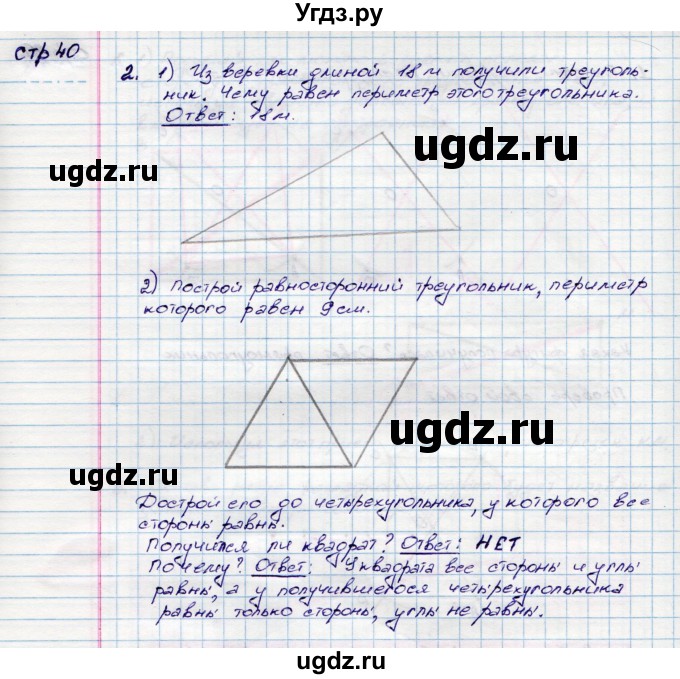 Угdz.ру
стр 40
2. 1) Из веревки длиной 18 м получили треуголь-
ник. Чему равен периметр этого треугольника.
Ответ: 18 м.
ugdz.ru
ugdz.ru
2) Построй равносторонний треугольник, периметр
которого равен 9 см.
ugdz.ru
ugdz.ru
Дострой его до четырехугольника, у которого все
стороны равны.
Получился ли квадрат? Ответ: НЕТ
Почему? Ответ: У квадрата все стороны и углы
равны, а у получившегося четырехугольника
равны только стороны, углы не равны.
ugdz.ru